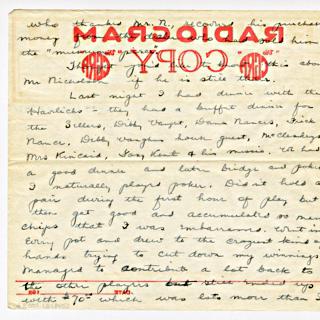 who thanks Mr. N., secures his purchase
money from
RADIOGRAM
"COPY"
the "missionary
this above
Mr Nicholson if he is still there.
Last night I had dinner with the
Warlicks - they had a buffet dinner for
the Sellers, Dibby Vaught, Dana Nances, Dick
Nance, Dibby Vaughts house guest, McCleskeys,
Mrs Kincaid, Tony Kent & his missis. We had
a good dinner and later bridge and poker.
I naturally played poker. Did not hold a
pair during the first hour of play but
then got good and accumulated so many
chips that I was embarrassed. Went in
every pot and drew to the craziest kind of
hands trying to cut down my winnings.
Managed to contribute a lot back to
the other players but still ended up
with $70 which was lots more than I